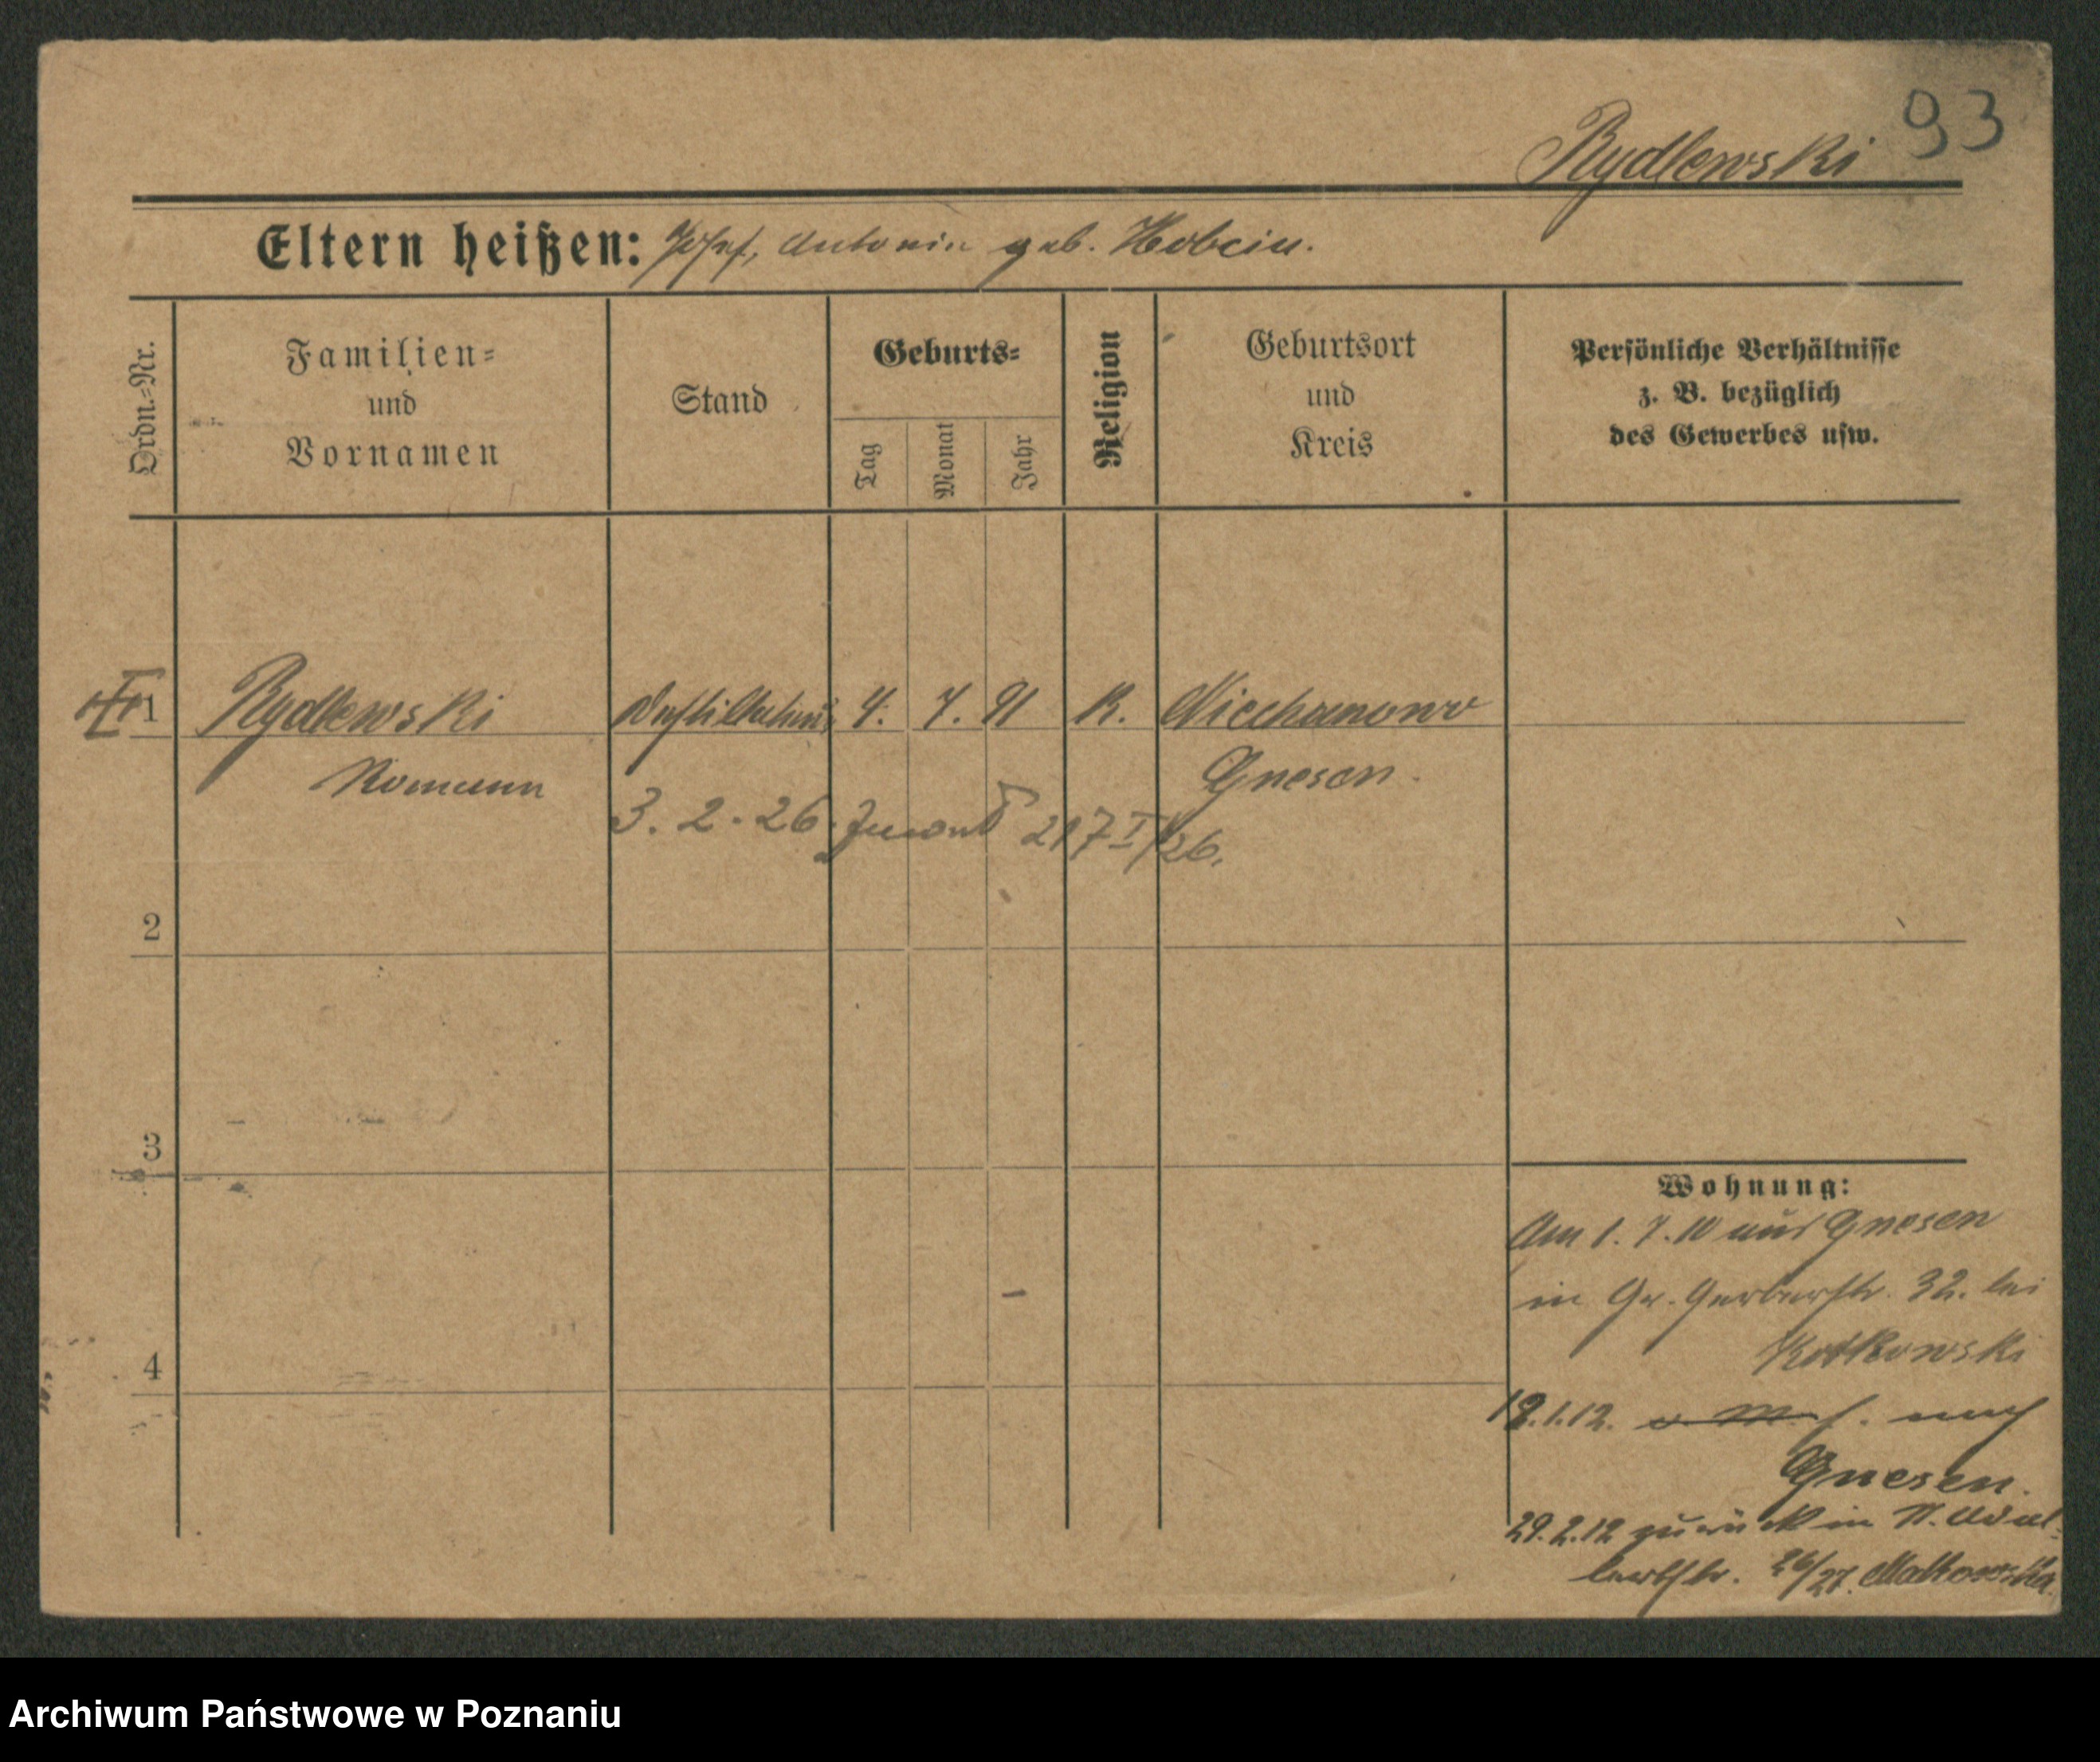 93
Rydlewski
Eltern heißen: Josef, Antonin geb. Kobcin.
Ordn.=Nr.
Familien=
und
Vornamen
Stand
Geburts=
Tag
Monat
Jahr
Religion
Geburtsort
und
Kreis
Persönliche Verhältnisse
z. B. bezüglich
des Gewerbes usw.
1 Rydlewski 4. 7. 91 K. Niechanowo
Romann Gnesen.
3. 2. 26. 217 I/26.
2
3
4
Wohnung:
Am 1. 7. 10 aus Gnesen
in Gr. Gerberstr. 32. bei
Kotkowski
18.1.12. f. nach
Gnesen.
29.2.12 zurück in St. Adal-
bertstr. 26/27. Malkowska.
Archiwum Państwowe w Poznaniu